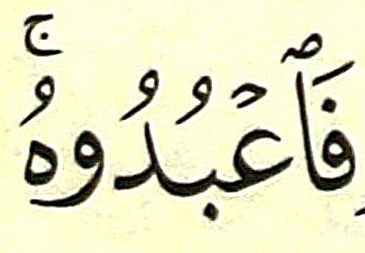 فَٱعْبُدُوهُ ۚ